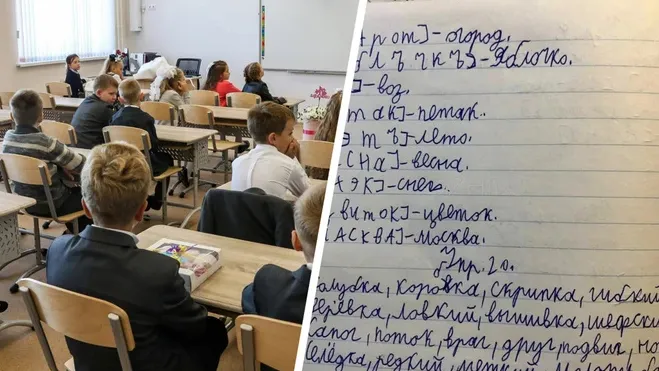 рот]-огород.
лъчкъ]-Яблочко.
]-воз.
так]-петак.
этъ]-лето.
сна]-весна.
эк]-снег.
виток]-цветок.
асква]-москва.
упр. 20.
коровка, скрипка, гибкий
ловкий, вышивка, шефски
поток, враг, друг, подвиг,
редкий, меткий,